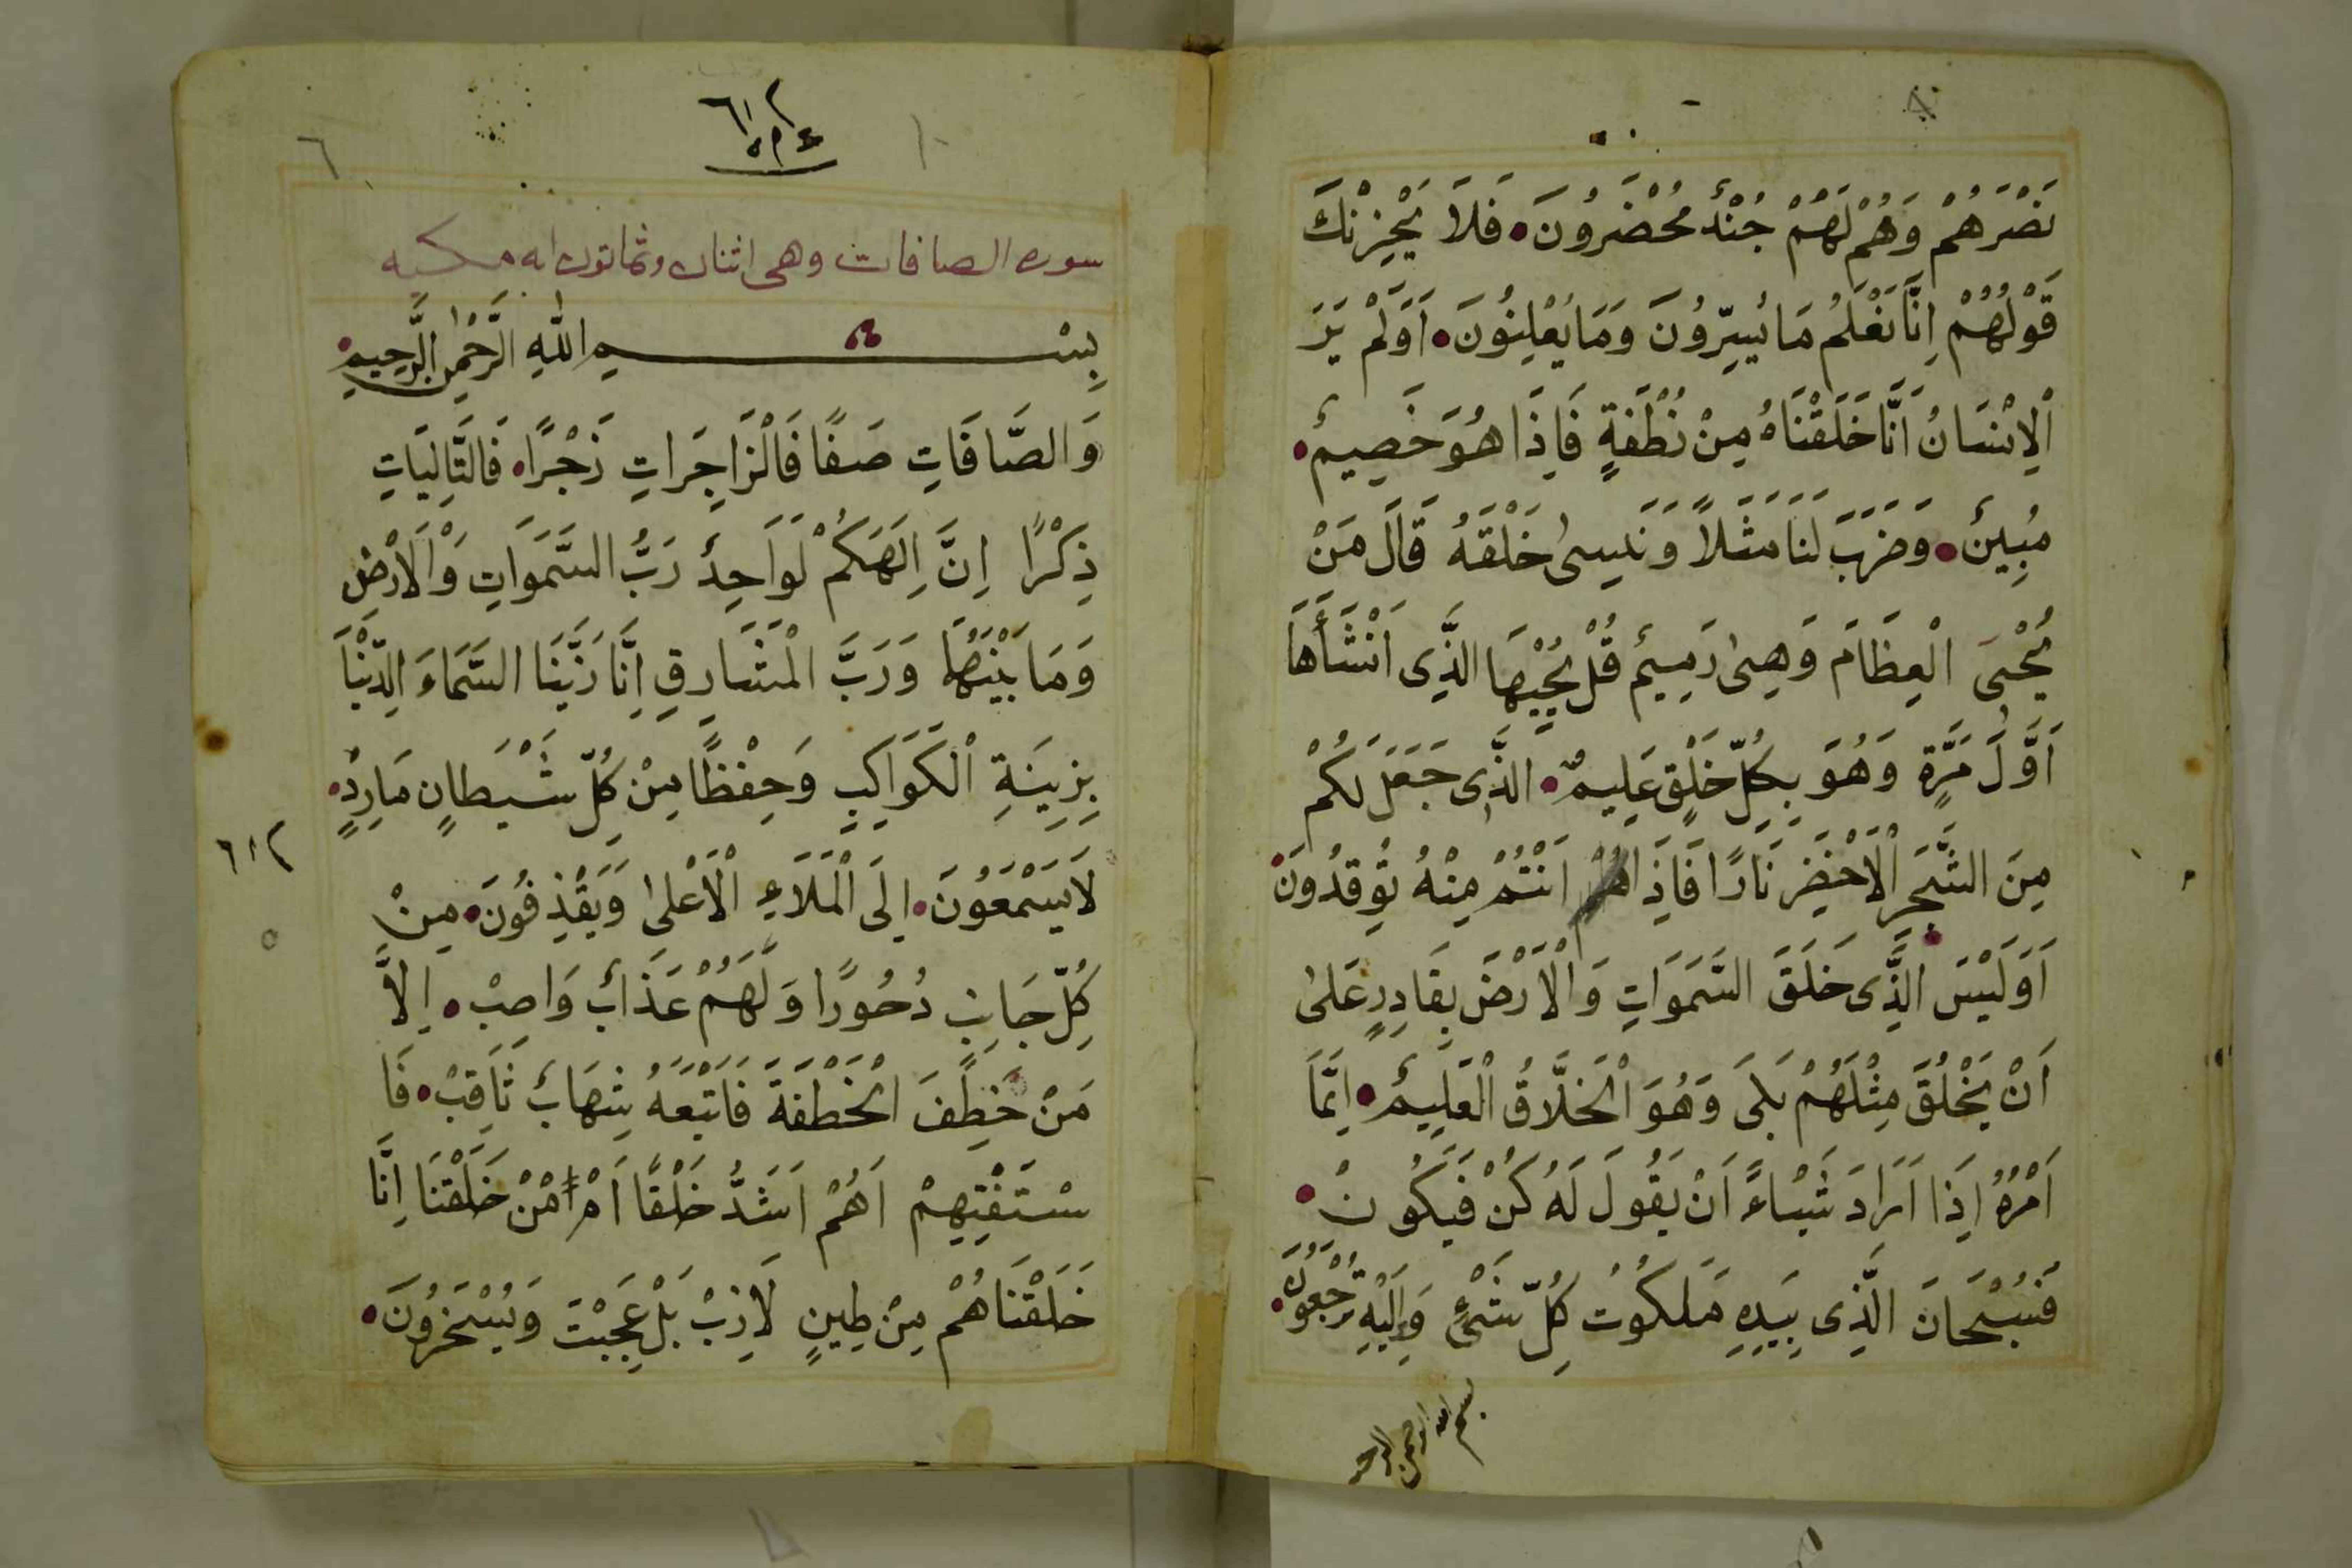 نَصْرَهُمْ وَهُمْ لَهُمْ جُنْدٌ مُحْضَرُونَ فَلَا يَحْزِنْكَ
قَوْلُهُمْ اِنَّا نَعْلَمُ مَا يُسِرُّونَ وَمَا يُعْلِنُونَ اَوَلَمْ يَرَ
الْاِنْسَانُ اَنَّا خَلَقْنَاهُ مِنْ نُطْفَةٍ فَاِذَا هُوَ خَصِيمٌ
مُبِينٌ وَضَرَبَ لَنَا مَثَلاً وَنَسِىَ خَلْقَهُ قَالَ مَنْ
يُحْيِى الْعِظَامَ وَهِىَ رَمِيمٌ قُلْ يُحْيِيهَا الَّذِى اَنْشَأَهَا
اَوَّلَ مَرَّةٍ وَهُوَ بِكُلِّ خَلْقٍ عَلِيمٌ الَّذِى جَعَلَ لَكُمْ
مِنَ الشَّجَرِ الْاَخْضَرِ نَارًا فَاِذَا اَنْتُمْ مِنْهُ تُوقِدُونَ
اَوَلَيْسَ الَّذِى خَلَقَ السَّمَوَاتِ وَالْاَرْضَ بِقَادِرٍ عَلىٰ
اَنْ يَخْلُقَ مِثْلَهُمْ بَلَى وَهُوَ الْخَلَّاقُ الْعَلِيمُ اِنَّمَا
اَمْرُهُ اِذَا اَرَادَ شَيْاءً اَنْ يَقُولَ لَهُ كُنْ فَيَكُونْ
فَسُبْحَانَ الَّذِى بِيَدِهِ مَلَكُوتُ كُلِّ شَىْءٍ وَاِلَيْهِ تُرْجَعُونَ
بسم الله الرحمن الرحيم
٦
٦١٢
سوره الصافات وهى اثنان وثمانون ايه مكيه
بِسْمِ اللّٰهِ الرَّحْمٰنِ الرَّحِيمِ
وَالصَّافَاتِ صَفًا فَالْزَاجِرَاتِ زَجْرًا فَالتَّالِيَاتِ
ذِكْرًا اِنَّ اِلَهَكُمْ لَوَاحِدٌ رَبُّ السَّمَوَاتِ وَالْاَرْضِ
وَمَا بَيْنَهُمَا وَرَبَّ الْمَشَارِقِ اِنَّا زَيَّنَا السَّمَاءَ الدُّنْيَا
بِزِينَةِ الْكَوَاكِبِ وَحِفْظًا مِنْ كُلِّ شَيْطَانٍ مَارِدٍ
لَا يَسَمْعَوُنَ اِلَى الْمَلَاءِ الْاَعْلىٰ وَيَقْذِفُونَ مِنْ
كُلِّ جَانِبٍ دُحُورًا وَلَهُمْ عَذَابٌ وَاصِبْ اِلَّا
مَنْ خَطِفَ الْخَطْفَةَ فَاَتْبَعَهُ شِهَابٌ ثَاقِبْ فَا
سْتَفْتِهِمْ اَهُمْ اَشَدُّ خَلْقًا اَمْ مَنْ خَلَقْنَا اِنَّا
خَلَقْنَاهُمْ مِنْ طِينٍ لَازِبْ بَلْ عَجِبْتَ وَيَسْخَرُونَ
٦١٢